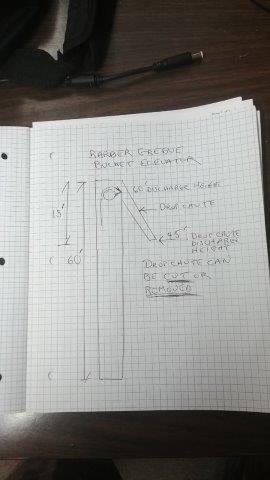 BARBER GREENE
BUCKET ELEVATOR
60' DISCHARGE HEIGHT
DROP CHUTE
15'
60'
45' DROP CHUTE
DISCHARGE
HEIGHT
DROP CHUTE CAN
BE CUT OR
REMOVED